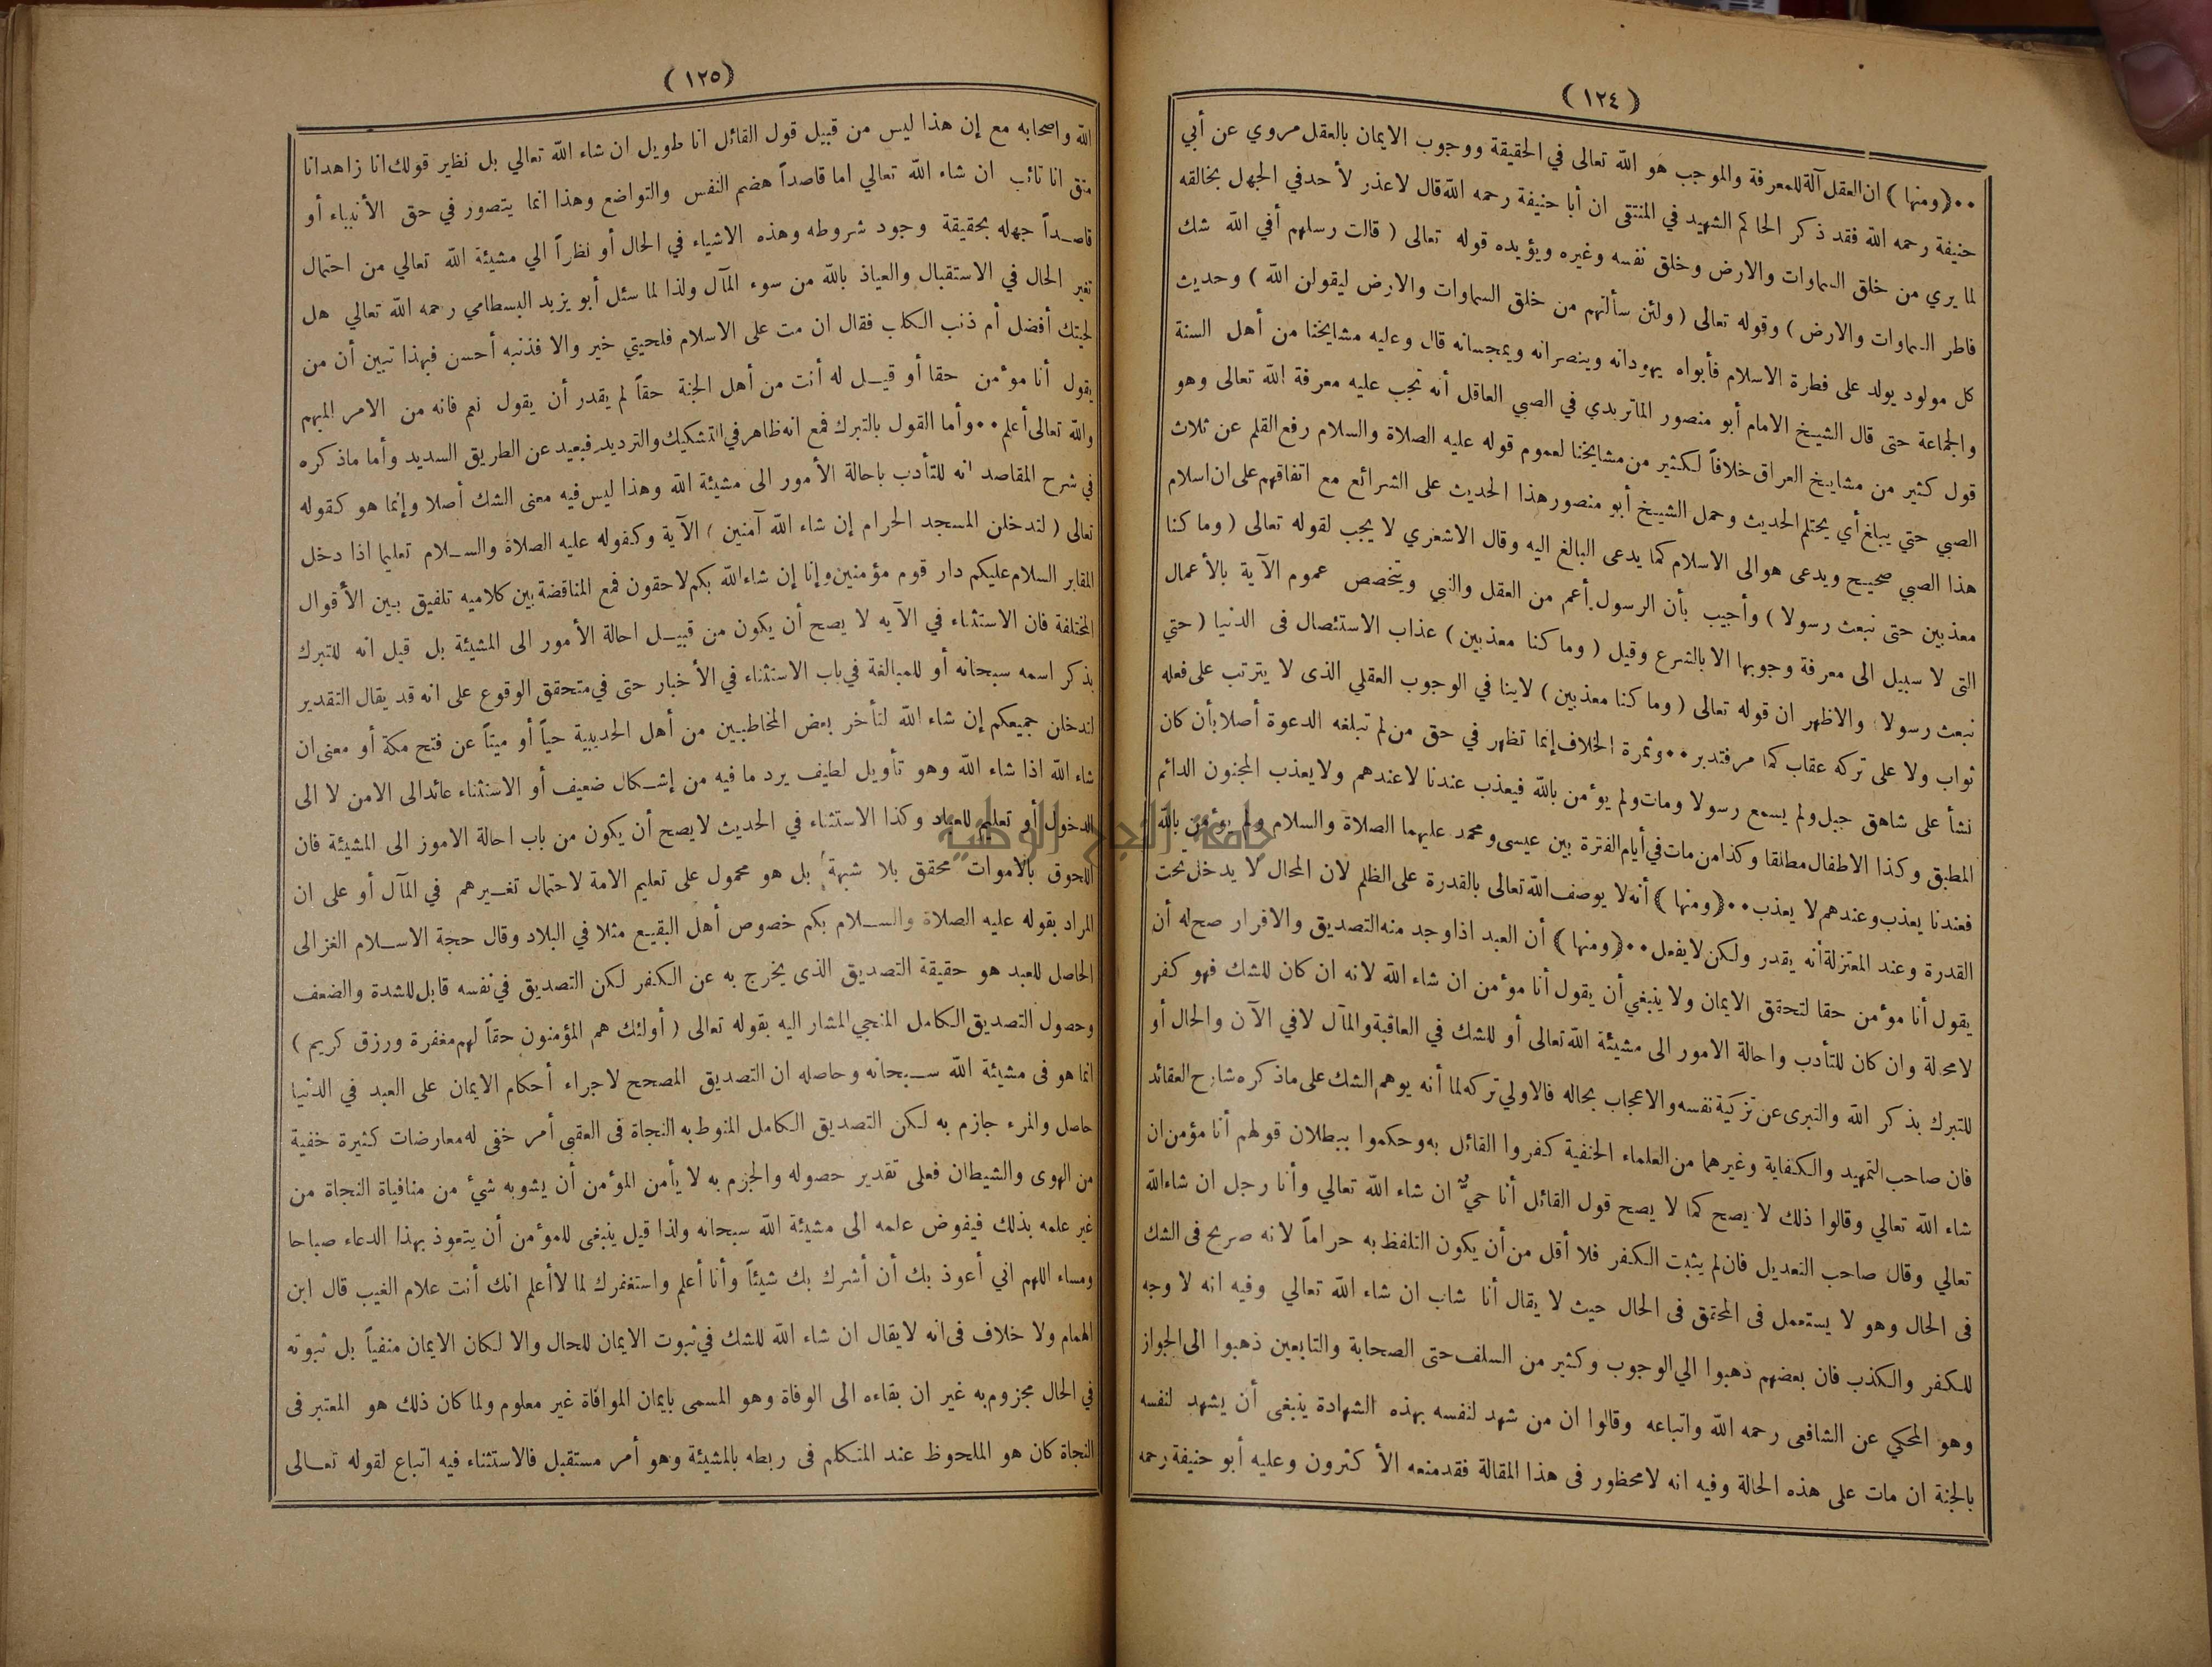 (١٢٤)
٠٠(ومنها) ان العقل آلة للمعرفة والموجب هو الله تعالى في الحقيقة ووجوب الايمان بالعقل مروي عن أبي
حنيفة رحمه الله فقد ذكر الحاكم الشهيد في المنتقى ان أبا حنيفة رحمه الله قال لا عذر لأحد في الجهل بخالقه
لما يري من خلق السماوات والارض وخلق نفسه وغيره ويؤيده قوله تعالى (قالت رسلهم أفي الله شك
فاطر السماوات والارض) وقوله تعالى (ولئن سألتهم من خلق السماوات والارض ليقولن الله) وحديث
كل مولود يولد على فطرة الاسلام فأبواه يهودانه وينصرانه ويمجسانه قال وعليه مشايخنا من أهل السنة
والجماعة حتى قال الشيخ الامام أبو منصور الماتريدي في الصبي العاقل أنه تجب عليه معرفة الله تعالى وهو
قول كثير من مشايخ العراق خلافاً لكثير من مشايخنا لعموم قوله عليه الصلاة والسلام رفع القلم عن ثلاث
الصبي حتي يبلغ أي يحتلم الحديث وحمل الشيخ أبو منصور هذا الحديث على الشرائع مع اتفاقهم على ان اسلام
هذا الصبي صحيح ويدعى هو الى الاسلام كما يدعى البالغ اليه وقال الاشعري لا يجب لقوله تعالى (وما كنا
معذبين حتى نبعث رسولا) وأجيب بأن الرسول أعم من العقل والنبي ويتخصص عموم الآية بالأعمال
التى لا سبيل الى معرفة وجوبها الا بالشرع وقيل (وما كنا معذبين) عذاب الاستئصال فى الدنيا (حتي
نبعث رسولا) والاظهر ان قوله تعالى (وما كنا معذبين) لا ينا في الوجوب العقلي الذى لا يترتب على فعله
ثواب ولا على تركه عقاب كما مر فتدبر ٠٠ وثمرة الخلاف إنما تظهر في حق من لم تبلغه الدعوة أصلا بأن كان
نشأ على شاهق جبل ولم يسمع رسولا ومات ولم يؤمن بالله فيعذب عندنا لا عندهم ولا يعذب المجنون الدائم
المطبق وكذا الاطفال مطلقا وكذا من مات في أيام الفترة بين عيسى ومحمد عليهما الصلاة والسلام ولم يؤمن بالله
فعندنا يعذب وعندهم لا يعذب ٠٠(ومنها) أنه لا يوصف الله تعالى بالقدرة على الظلم لان المحال لا يدخل تحت
القدرة وعند المعتزلة أنه يقدر ولكن لا يفعل ٠٠(ومنها) أن العبد اذا وجد منه التصديق والاقرار صح له أن
يقول أنا مؤمن حقا لتحقق الايمان ولا ينبغي أن يقول أنا مؤمن ان شاء الله لانه ان كان للشك فهو كفر
لا محالة وان كان للتأدب واحالة الامور الى مشيئة الله تعالى أو للشك في العاقبة والمآل لا في الآن والحال أو
للتبرك بذكر الله والتبرى عن تزكية نفسه والاعجاب بحاله فالاولي تركه لما أنه يوهم الشك على ماذكره شارح العقائد
فان صاحب التمهيد والكفاية وغيرهما من العلماء الحنفية كفروا القائل به وحكموا ببطلان قولهم أنا مؤمن ان
شاء الله تعالي وقالوا ذلك لا يصح كما لا يصح قول القائل أنا حيٌّ ان شاء الله تعالي وأنا رجل ان شاء الله
تعالي وقال صاحب التعديل فان لم يثبت الكفر فلا أقل من أن يكون التلفظ به حراماً لانه صريح فى الشك
فى الحال وهو لا يستعمل فى المحقق فى الحال حيث لا يقال أنا شاب ان شاء الله تعالي وفيه انه لا وجه
للكفر والكذب فان بعضهم ذهبوا الي الوجوب وكثير من السلف حتى الصحابة والتابعين ذهبوا الى الجواز
وهو المحكي عن الشافعى رحمه الله واتباعه وقالوا ان من شهد لنفسه بهذه الشهادة ينبغى أن يشهد لنفسه
بالجنة ان مات على هذه الحالة وفيه انه لا محظور فى هذا المقالة فقد منعه الأكثرون وعليه أبو حنيفة رحمه
(١٢٥)
الله واصحابه مع إن هذا ليس من قبيل قول القائل انا طويل ان شاء الله تعالي بل نظير قولك انا زاهد انا
متق انا تائب ان شاء الله تعالي اما قاصداً هضم النفس والتواضع وهذا انما يتصور في حق الأنبياء أو
قاصداً جهله بحقيقة وجود شروطه وهذه الاشياء في الحال أو نظراً الي مشيئة الله تعالي من احتمال
تغير الحال في الاستقبال والعياذ بالله من سوء المآل ولذا لما سئل أبو يزيد البسطامي رحمه الله تعالي هل
لحيتك أفضل أم ذنب الكلب فقال ان مت على الاسلام فلحيتي خير والا فذنبه أحسن فبهذا تبين أن من
يقول أنا مؤمن حقا أو قيل له أنت من أهل الجنة حقاً لم يقدر أن يقول نعم فانه من الامر المبهم
والله تعالى أعلم ٠٠ وأما القول بالتبرك فمع انه ظاهر في التشكيك والترديد فبعيد عن الطريق السديد وأما ماذكره
في شرح المقاصد انه للتأدب باحالة الأمور الى مشيئة الله وهذا ليس فيه معنى الشك أصلا وإنما هو كقوله
تعالى (لتدخلن المسجد الحرام إن شاء الله آمنين) الآية وكقوله عليه الصلاة والسلام تعليما اذا دخل
المقابر السلام عليكم دار قوم مؤمنين وإنا إن شاء الله بكم لاحقون فمع المناقضة بين كلاميه تلفيق بين الأقوال
المختلفة فان الاستثناء في الآيه لا يصح أن يكون من قبيل احالة الأمور الى المشيئة بل قيل انه للتبرك
بذكر اسمه سبحانه أو للمبالغة في باب الاستثناء في الأخبار حتى في متحقق الوقوع على انه قد يقال التقدير
لتدخلن جميعكم إن شاء الله لتأخر بعض المخاطبين من أهل الحديبية حياً أو ميتاً عن فتح مكة أو معنى ان
شاء الله اذا شاء الله وهو تأويل لطيف يرد ما فيه من إشكال ضعيف أو الاستثناء عائد الى الامن لا الى
الدخول أو تعليم للعباد وكذا الاستثناء في الحديث لا يصح أن يكون من باب احالة الامور الى المشيئة فان
اللحوق بالأموات محقق بلا شبهة بل هو محمول على تعليم الامة لاحتمال تغيرهم في المآل أو على ان
المراد بقوله عليه الصلاة والسلام بكم خصوص أهل البقيع مثلا في البلاد وقال حجة الاسلام الغزالى
الحاصل للعبد هو حقيقة التصديق الذى يخرج به عن الكفر لكن التصديق في نفسه قابل للشدة والضعف
وحصول التصديق الكامل المنجي المشار اليه بقوله تعالى (أولئك هم المؤمنون حقاً لهم مغفرة ورزق كريم)
انما هو فى مشيئة الله سبحانه وحاصله ان التصديق المصحح لاجراء أحكام الايمان على العبد في الدنيا
حاصل والمرء جازم به لكن التصديق الكامل المنوط به النجاة فى العقبى أمر خفى له معارضات كثيرة خفية
من الهوى والشيطان فعلى تقدير حصوله والجزم به لا يأمن المؤمن أن يشوبه شيء من منافياة النجاة من
غير علمه بذلك فيفوض علمه الى مشيئة الله سبحانه ولذا قيل ينبغى للمؤمن أن يتعوذ بهذا الدعاء صباحا
ومساء اللهم اني أعوذ بك أن أشرك بك شيئاً وأنا أعلم واستغفرك لما لا أعلم انك أنت علام الغيب قال ابن
الهمام ولا خلاف فى انه لا يقال ان شاء الله للشك في ثبوت الايمان للحال والا لكان الايمان منفياً بل ثبوته
في الحال مجزوم به غير ان بقاءه الى الوفاة وهو المسمى بايمان الموافاة غير معلوم ولما كان ذلك هو المعتبر فى
النجاة كان هو الملحوظ عند المتكلم فى ربطه بالمشيئة وهو أمر مستقبل فالاستثناء فيه اتباع لقوله تعالى
جامعة النجاح الوطنية